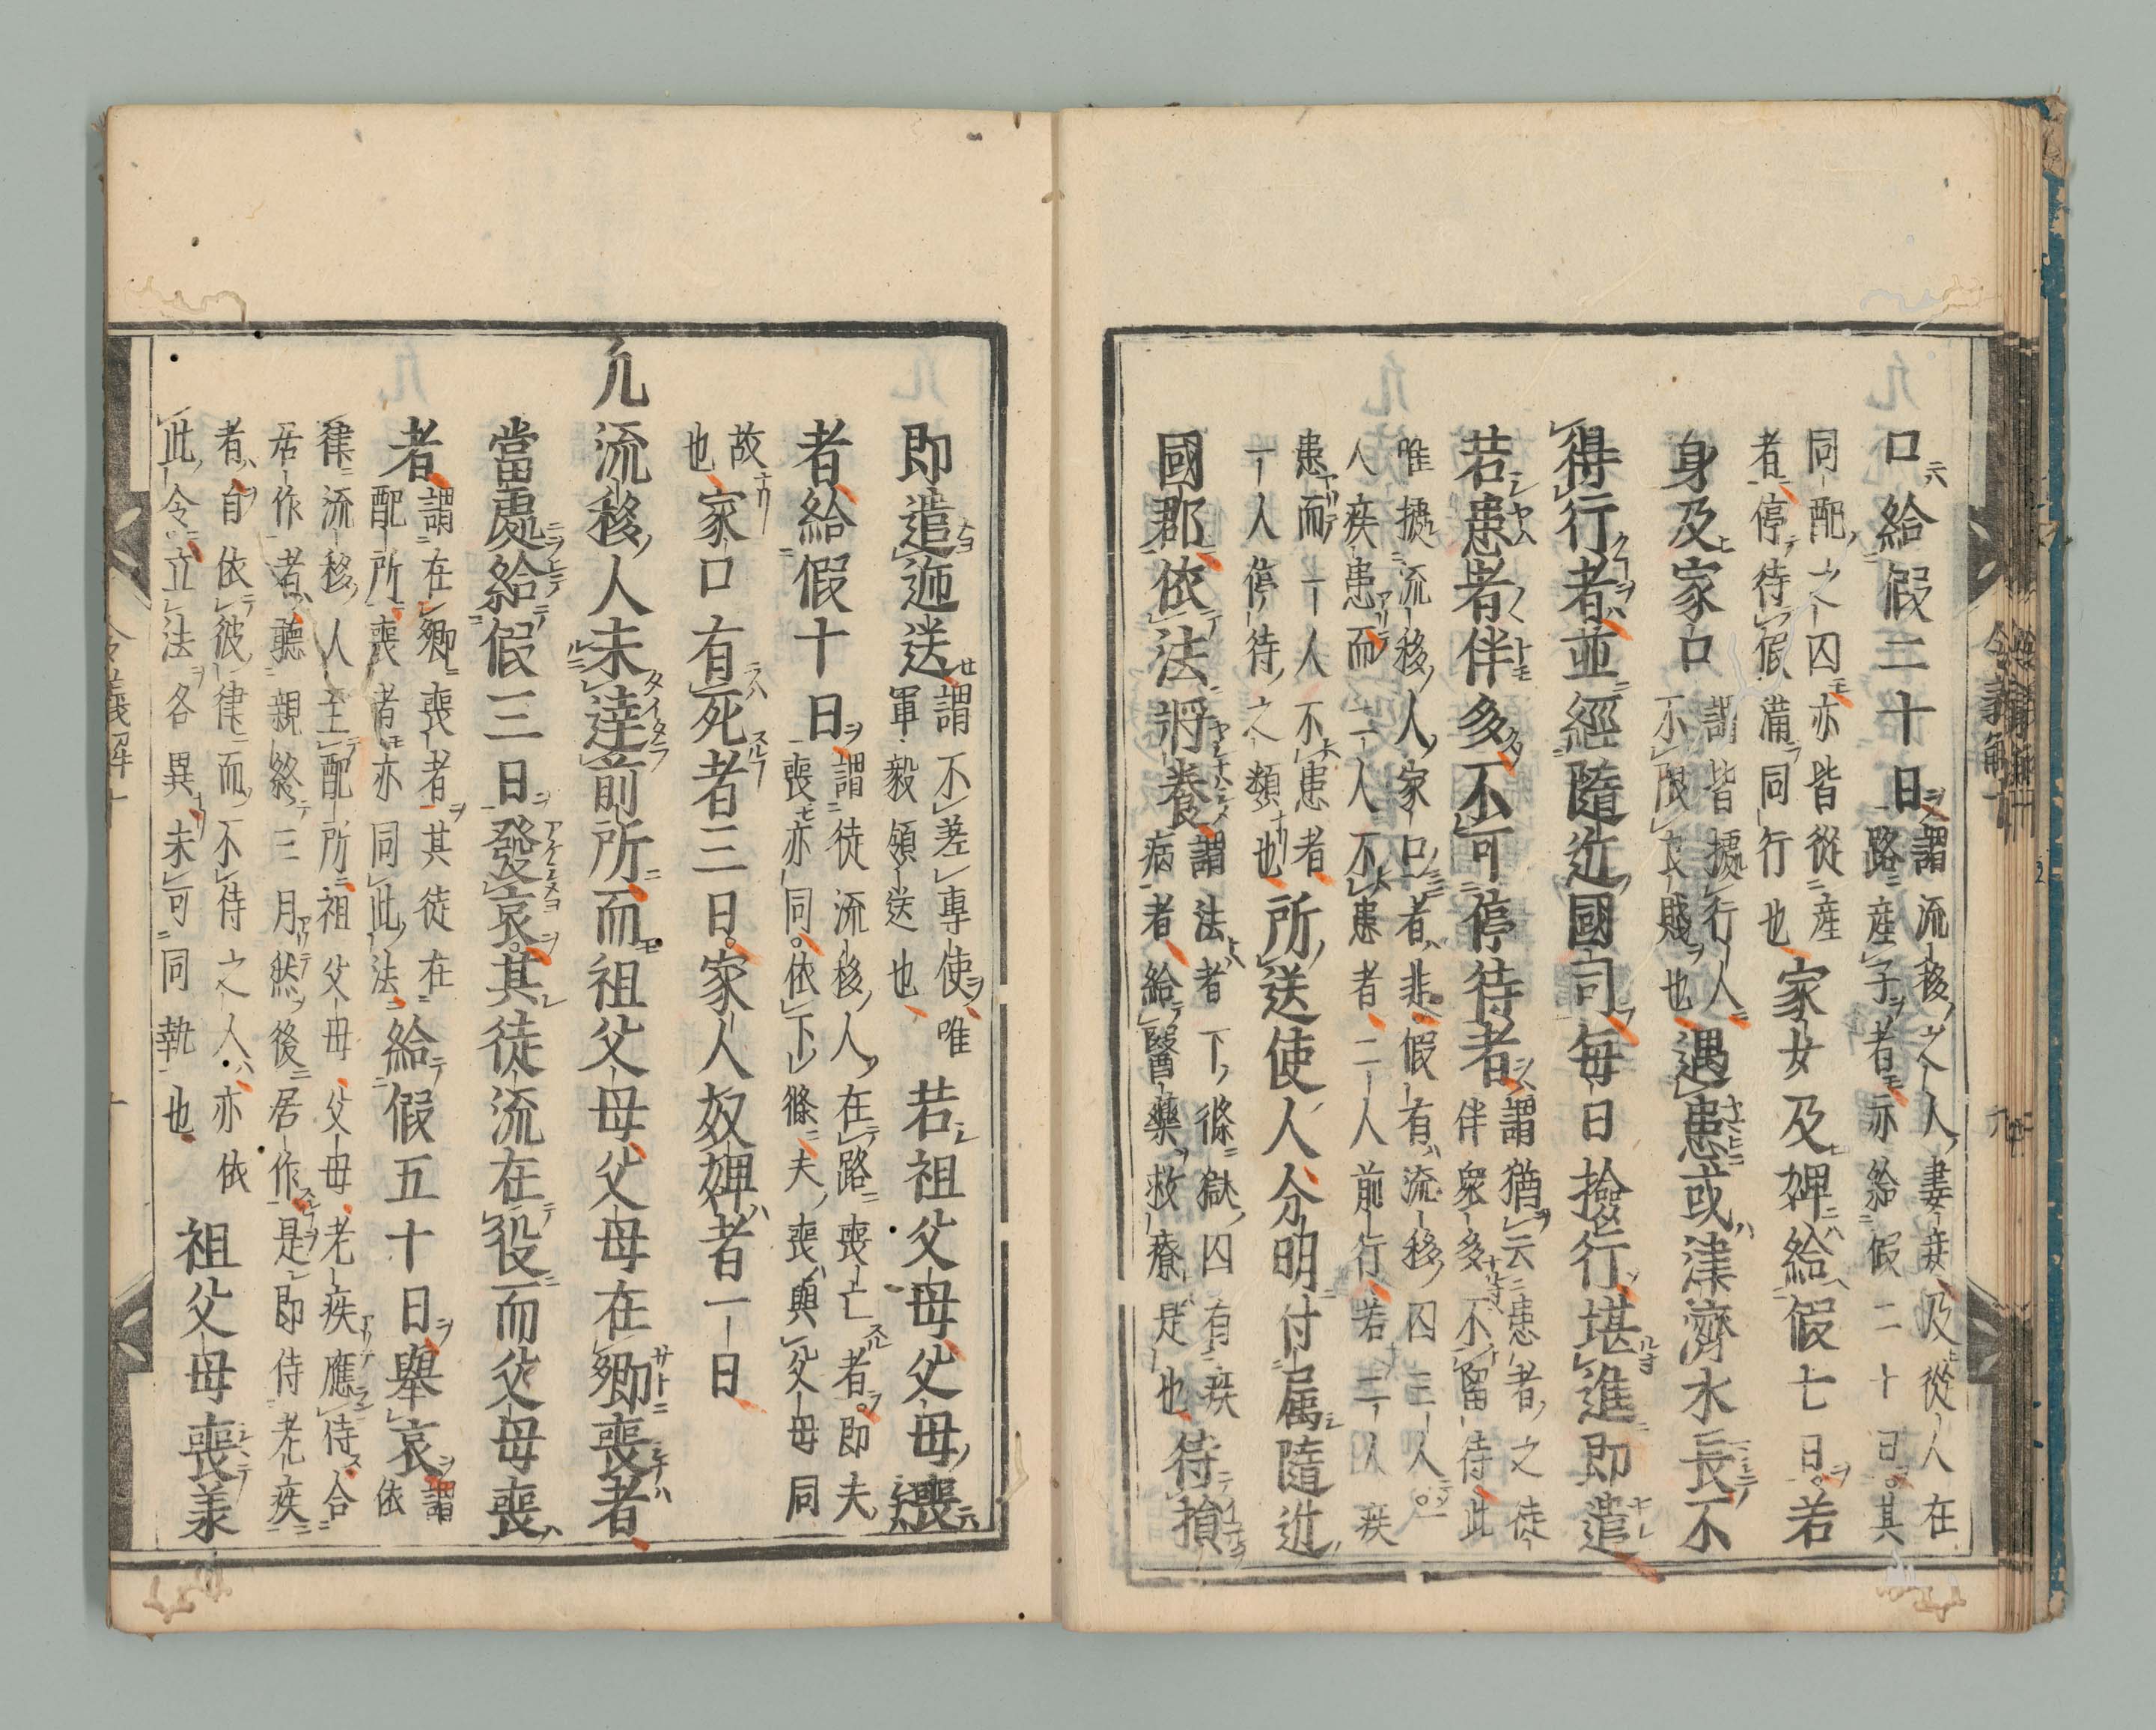 口給假二十日謂流移之人妻妾及從人在
路産子者亦給假二十日其
同配之囚亦皆從産
者停待假滿同行也家女及婢給假七日若
身及家口謂皆據行人
不限良賤也遇患或津濟水長不
得行者並經隨近國司毎日撿行堪進即遣
若患者伴多不可停待者謂猶云患者之徒
伴衆多不留待此
唯據流移人家口者非假有流移囚三人
人疾患而二人不患者二人前行若二人疾
患而一人不患者
一人停待之類也所送使人分明付属隨近
國郡依法將養謂法者下條獄囚有疾
病者給醫藥救療是也待損
即遣逓送謂不差專使唯
軍毅領送也若祖父母父母喪
者給假十日謂徒流移人在路喪亡者即夫
喪亦同依下條夫喪與父母同
故
也家口有死者三日家人奴婢者一日
凡流移人未達前所而祖父母父母在郷喪者
當處給假三日發哀其徒流在役而父母喪
者謂在郷喪者其徒在
配所喪者亦同此法給假五十日舉哀謂
依
律流移人至配所祖父母父母老疾應侍合
居作者聽親終三月然後居作是即侍老疾
者自依彼律而不待之人亦依
此令立法各異未可同執也祖父母喪羕
令義解十